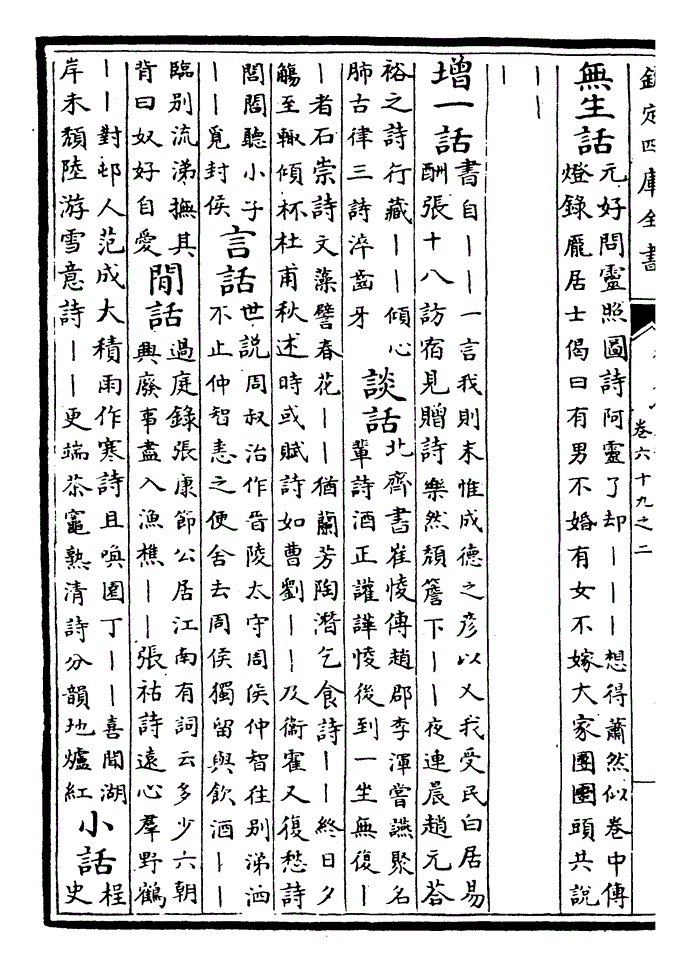 欽定四庫全書
卷六十九之二
無生話
元好問靈照圖詩阿靈了却｜｜｜想得蕭然似卷中傳
燈錄龐居士偈曰有男不婚有女不嫁大家團圞頭共說
｜｜
｜
增一話
書自｜｜一言我則末惟成德之彥以乂我受民白居易
酬張十八訪宿見贈詩樂然頹簷下｜｜夜連晨趙元荅
裕之詩行藏｜｜傾心
肺古律三詩淬齒牙
談話
北齊書崔㥄傳趙郡李渾嘗讌聚名
輩詩酒正讙譁㥄後到一坐無復｜
｜者石崇詩文藻譬春花｜｜猶蘭芳陶潛乞食詩｜｜終日夕
觴至輒傾杯杜甫秋述時或賦詩如曹劉｜｜及衞霍又復愁詩
閭閻聽小子
｜｜覓封侯
言話
世説周叔治作晉陵太守周侯仲智往別涕泗
不止仲智恚之便舍去周侯獨留與飲酒｜｜
臨别流涕撫其
背曰奴好自愛
閒話
過庭錄張康節公居江南有詞云多少六朝
興廢事盡入漁樵｜｜張祜詩遠心羣野鶴
｜｜對邨人范成大積雨作寒詩且喚園丁｜｜喜聞湖
岸未頹陸游雪意詩｜｜更端茶竈熟清詩分韻地爐紅
小話
桯
史